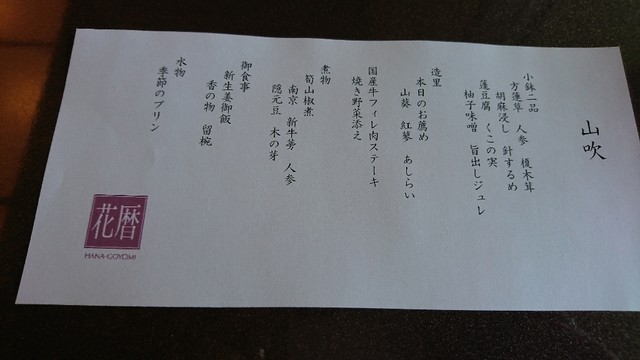 山吹
小鉢二品
方蓮草 人参 榎木茸
胡麻浸し 針するめ
蓬豆腐 くこの実
柚子味噌 旨出しジュレ
造里
本日のお薦め
山葵 紅蓼 あしらい
国産牛フィレ肉ステーキ
焼き野菜添え
煮物
筍山椒煮
南京 新牛蒡 人参
隠元豆 木の芽
御食事
新生姜御飯
香の物 留椀
水物
季節のプリン
花暦
HANA-GOYOMI